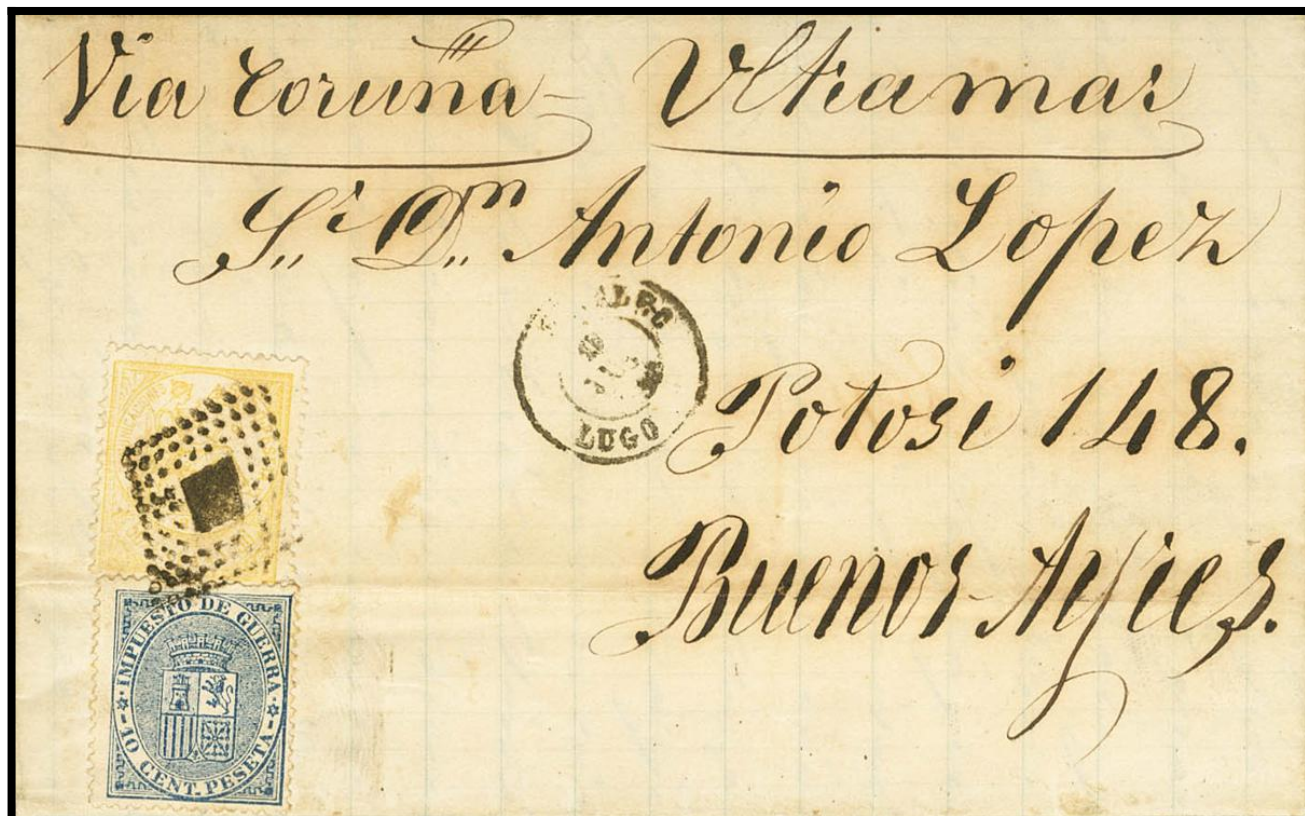 Via Coruña - Ultramar
Sr Dn Antonio Lopez
LUGO
Potosi 148.
Buenos Ayres.
IMPUESTO DE GUERRA
10 CENT. PESETA